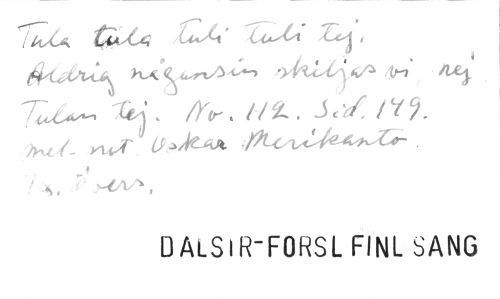 Tula tula tuli tuli tej.
Aldrig någonsin skiljas vi, nej
Tulan tej. No. 112. Sid. 149.
mel. not. Oskar Merikanto.
Övers.
DALSIR-FORSL FINL SANG